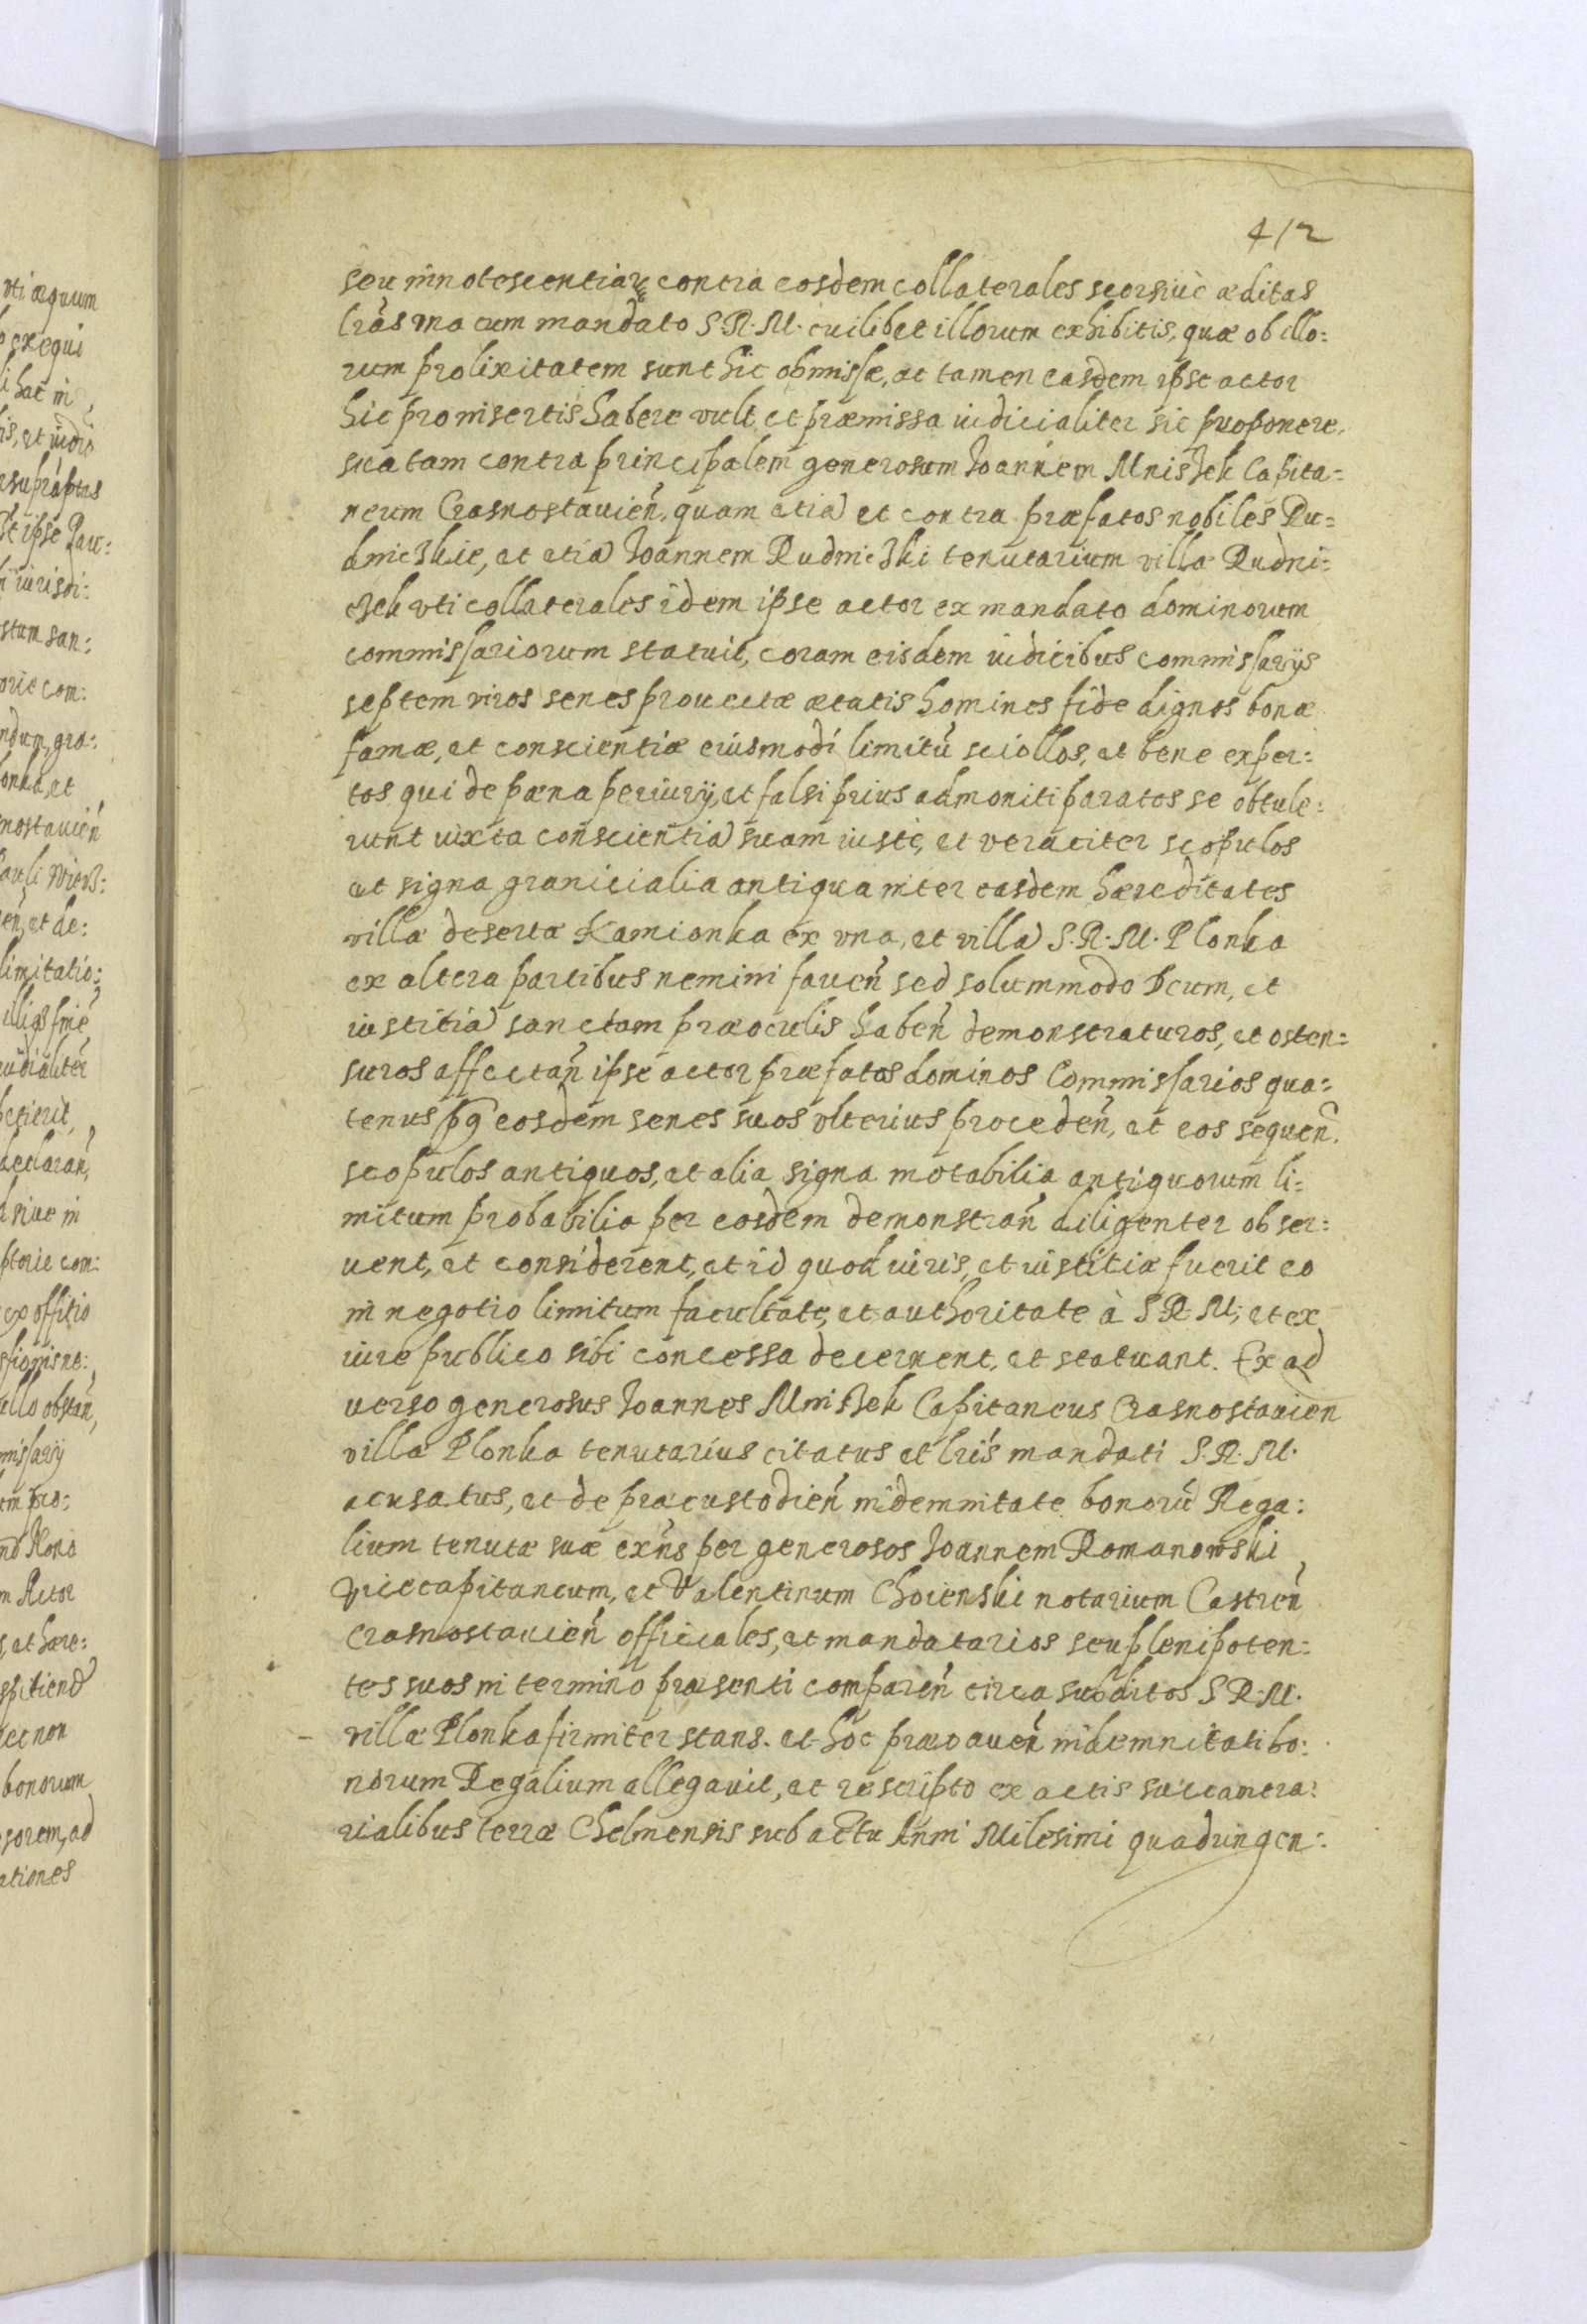 412
seu innotescentiar contra eosdem collaterales seorsivè æditas
lras vna cum mandato S. R. M. cuilibet illorum exhibitis, quæ ob illo:
rum prolixitatem sunt hic obmissæ, at tamen easdem ipse actor
hic pro insertis habere vult et præmissa iudicialiter sic proponere,
sica tam contra principalem generosum Ioannem Mniszek Capita:
neum Crasnostauien, quam etiã et contra præfatos nobiles Ru:
dniczkie, et etiã Ioannem Rudniczki tenutarium villæ Rudni:
czek vti collaterales idem ipse actor ex mandato dominorum
commissariorum statuit, coram eisdem iudicibus commissarijs
septem viros senes prouectæ ætatis homines fide dignos bonæ
famæ, et conscientiæ eiusmodi limitũ sciollos, et bene exper:
tos qui de pæna periurij, et falsi prius admoniti paratos se obtule:
runt iuxta conscientiã suam iustè, et veraciter scopulos
et signa granicialia antiqua inter easdem hæreditates
villæ desertæ Kamionka ex vna, et villã S. R. M. Plonka
ex altera partibus nemini fauen sed solummodo Deum, et
iustitiã sanctam præ oculis haben demonstraturos, et osten:
suros affectan ipse actor præfatos dominos Commissarios qua:
tenus eosdem senes suos vlterius proceden, et eos sequen.
scopulos antiquos, et alia signa notabilia antiquorum li:
mitum probabilia per eosdem demonstran diligenter obser:
uent, et considerent, et id quod iuris, et iustitiæ fuerit eo
in negotio limitum facultate, et authoritate à S. R. M. et ex
iure publico sibi concessa decernent, et statuant. Ex ad
uerso generosus Ioannes Mniszek Capitaneus Crasnostauien
villæ Plonka tenutarius citatus et lris mandati S. R. M.
acusatus, et de præcustodien indemnitate bonorũ Rega:
lium tenutæ suæ exns per generosos Ioannem Romanowski
Vicecapitaneum, et Valentinum Choienski notarium Castren
Crasnostauien officiales, et mandatarios seu plenipoten:
tes suos in termino præsenti comparen circa subditos S. R. M.
villæ Plonka firmiter stans. et hoc præcauen indemnitati bo:
norum Regalium allegauit, et rescripto ex actis succamera:
rialibus terræ Chelmensis sub actu Anni Milesimi quadringen:
vti æquum
exequi
hac in
Rono
m Actor
et hære:
nec non
bonorum
sorem, ad
ationes